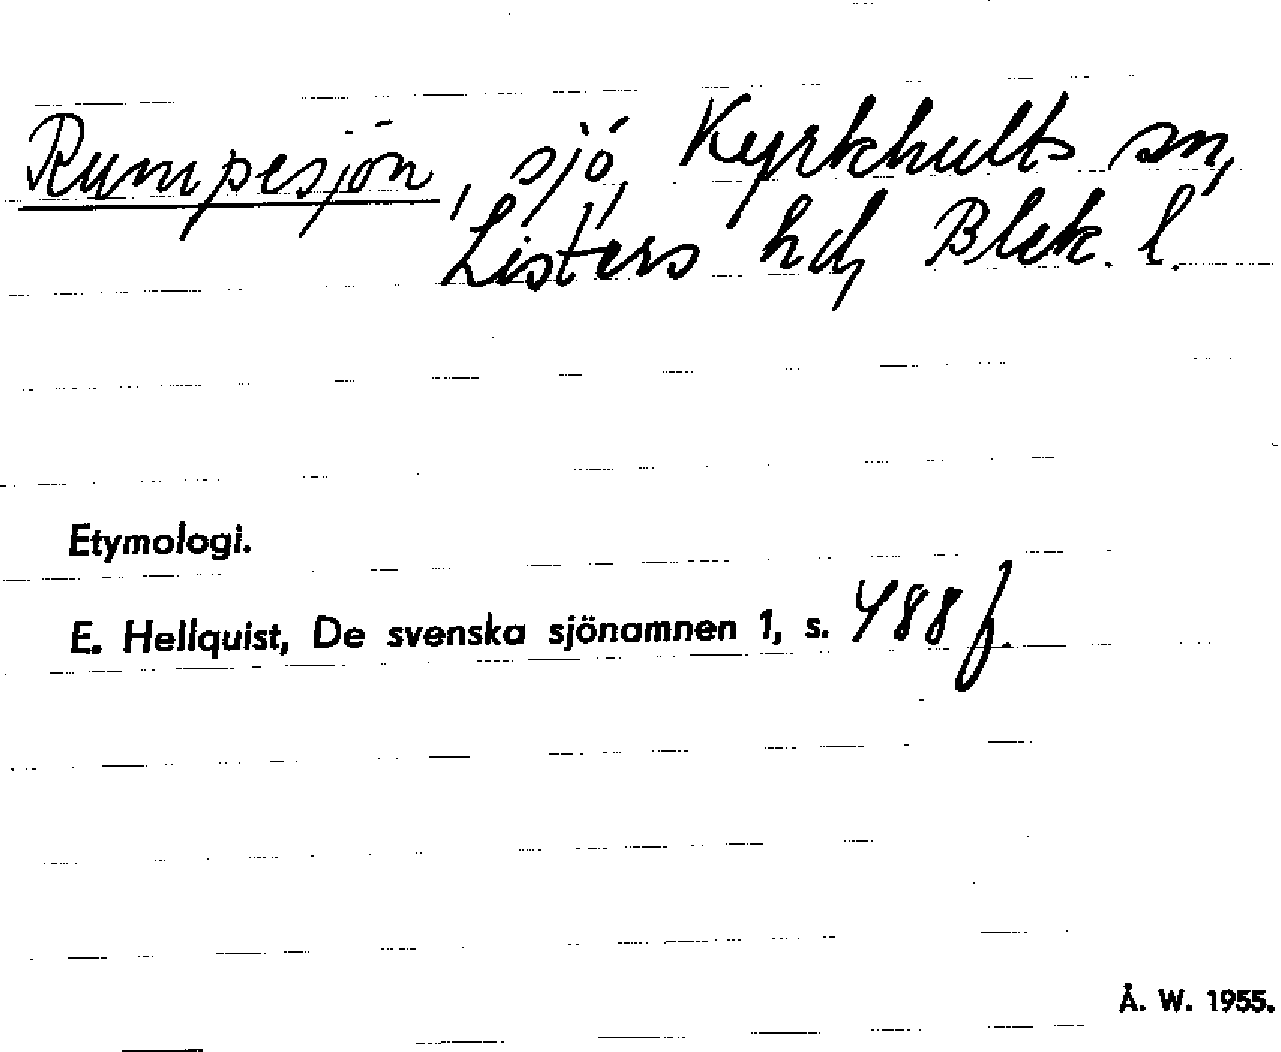 Rumpesjön, sjö, Kyrkhults sn,
Listers hd, Blek. l.
Etymologi.
E. Hellquist, De svenska sjönamnen 1, s. 488 f.
Å. W. 1955.